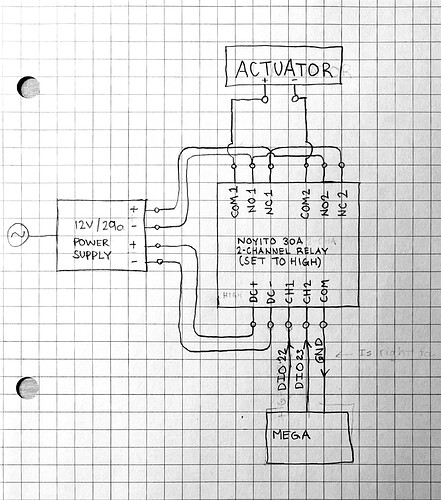 ACTUATOR
+ -
COM 1
NO 1
NC 1
COM 2
NO 2
NC 2
+
12V/29a
-
POWER
+
SUPPLY
-
NOYITO 30A
2-CHANNEL RELAY
(SET TO HIGH)
HIGH
DC+
DC-
CH1
CH2
COM
DIO 22
DIO 23
GND
← Is right
MEGA